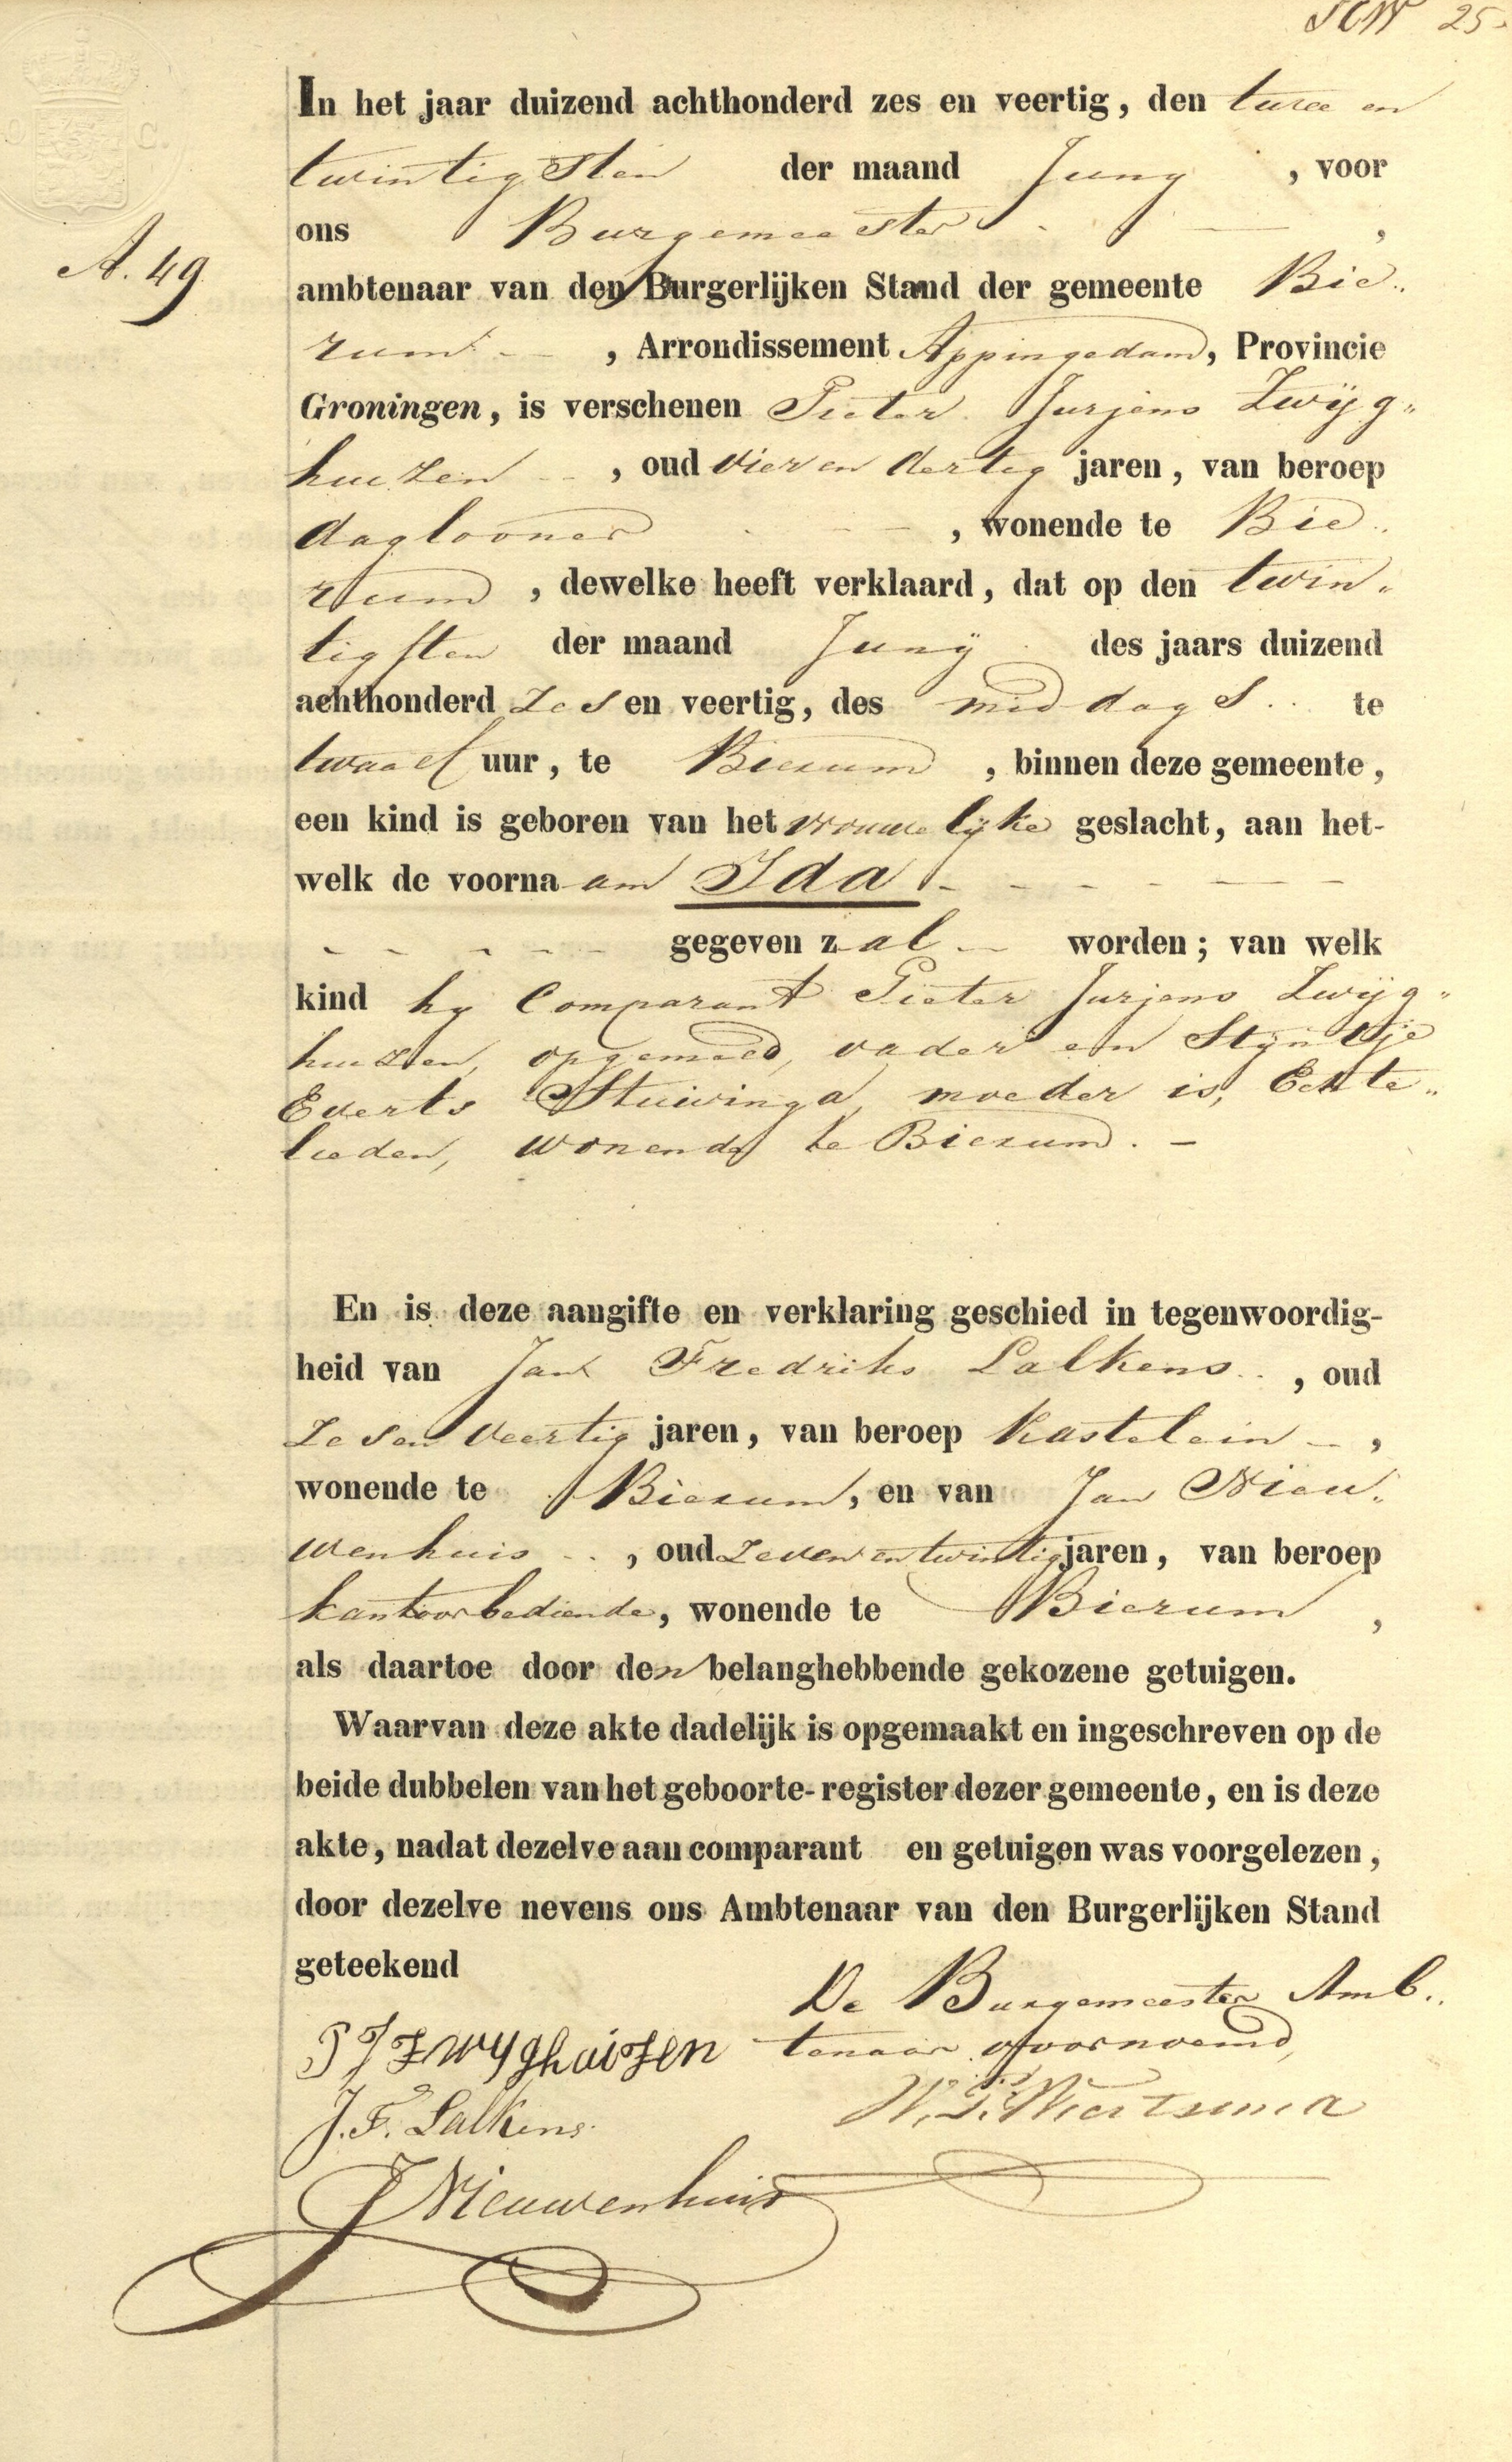 25.
In het jaar duizend achthonderd zes en veertig, den twee en
twintigsten der maand Juny, voor
ons Burgemeester,
A. 49
ambtenaar van den Burgerlijken Stand der gemeente Bie„
rum, Arrondissement Appingedam, Provincie
Groningen, is verschenen Pieter Jurjens Zwijg„
huizen, oud vier en dertig jaren, van beroep
daglooner, wonende te Bie„
rum, dewelke heeft verklaard, dat op den twin„
tigsten der maand Junij des jaars duizend
achthonderd zes en veertig, des middags te
twaalf uur, te Bierum, binnen deze gemeente,
een kind is geboren van het vrouwelijke geslacht, aan het-
welk de voornaam Ida
gegeven zal worden; van welk
kind hy Comparant Pieter Jurjens Zwijg„
huizen, opgemeld, vader en Stijntje
Everts Stuivinga, moeder is, Echte„
lieden, wonende te Bierum. -
En is deze aangifte en verklaring geschied in tegenwoordig-
heid van Jan Fredriks Lalkens, oud
zes en veertig jaren, van beroep Kastelein,
wonende te Bierum, en van Jan Nieu„
wenhuis, oud zeven en twintig jaren, van beroep
kantoorbediende, wonende te Bierum,
als daartoe door den belanghebbende gekozene getuigen.
Waarvan deze akte dadelijk is opgemaakt en ingeschreven op de
beide dubbelen van het geboorte-register dezer gemeente, en is deze
akte, nadat dezelve aan comparant en getuigen was voorgelezen,
door dezelve nevens ons Ambtenaar van den Burgerlijken Stand
geteekend
De Burgemeester Amb„
tenaar voornoemd,
P J Zwyghuizen
J. F. Lalkens
J Nieuwenhuis